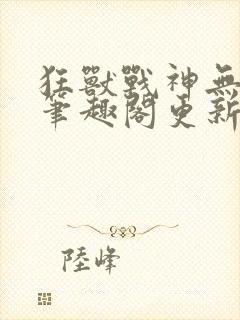 狂獸戰神無
筆趣閣更新
陸峰